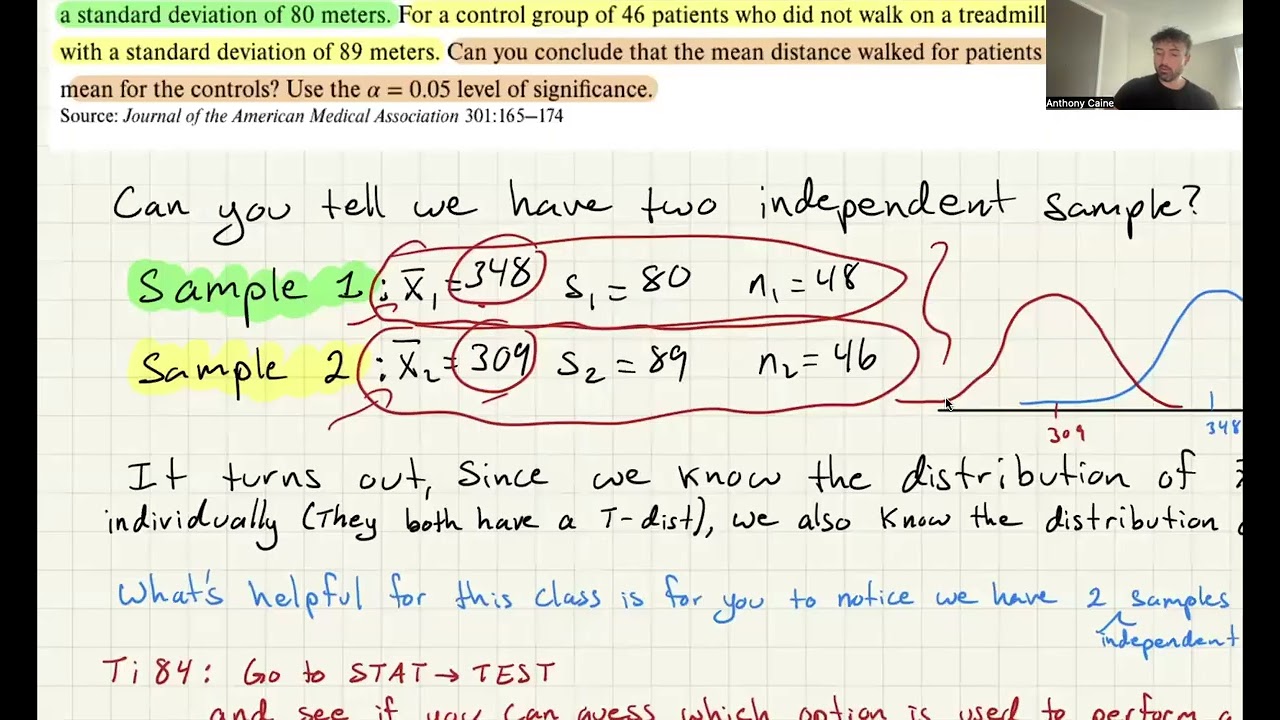 a standard deviation of 80 meters. For a control group of 46 patients who did not walk on a treadmill
with a standard deviation of 89 meters. Can you conclude that the mean distance walked for patients
mean for the controls? Use the α = 0.05 level of significance.
Source: Journal of the American Medical Association 301:165–174
Anthony Caine
Can you tell we have two independent sample?
Sample 1 : x̄₁ = 348 s₁ = 80 n₁ = 48
Sample 2 : x̄₂ = 309 s₂ = 89 n₂ = 46
309 348
It turns out, Since we know the distribution of
individually (They both have a T-dist), we also know the distribution
What's helpful for this class is for you to notice we have 2 samples
independent
Ti 84: Go to STAT → TEST
and see if you can guess which option is used to perform a